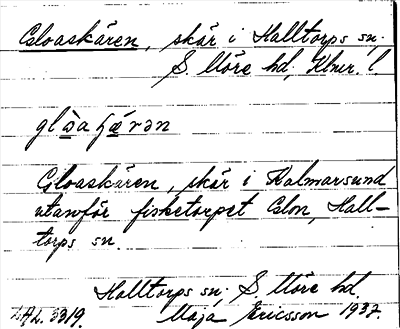 Gloaskären, skär i Halltorps sn.
S. Möre hd, Klmr. l.
glòaʃǽrən
Gloaskären, skär i Kalmarsund
utanför fisketorpet Glon, Hall-
torps sn.
Halltorps sn. S. Möre hd.
L.A.L. 3319. Maja Ericsson 1932.